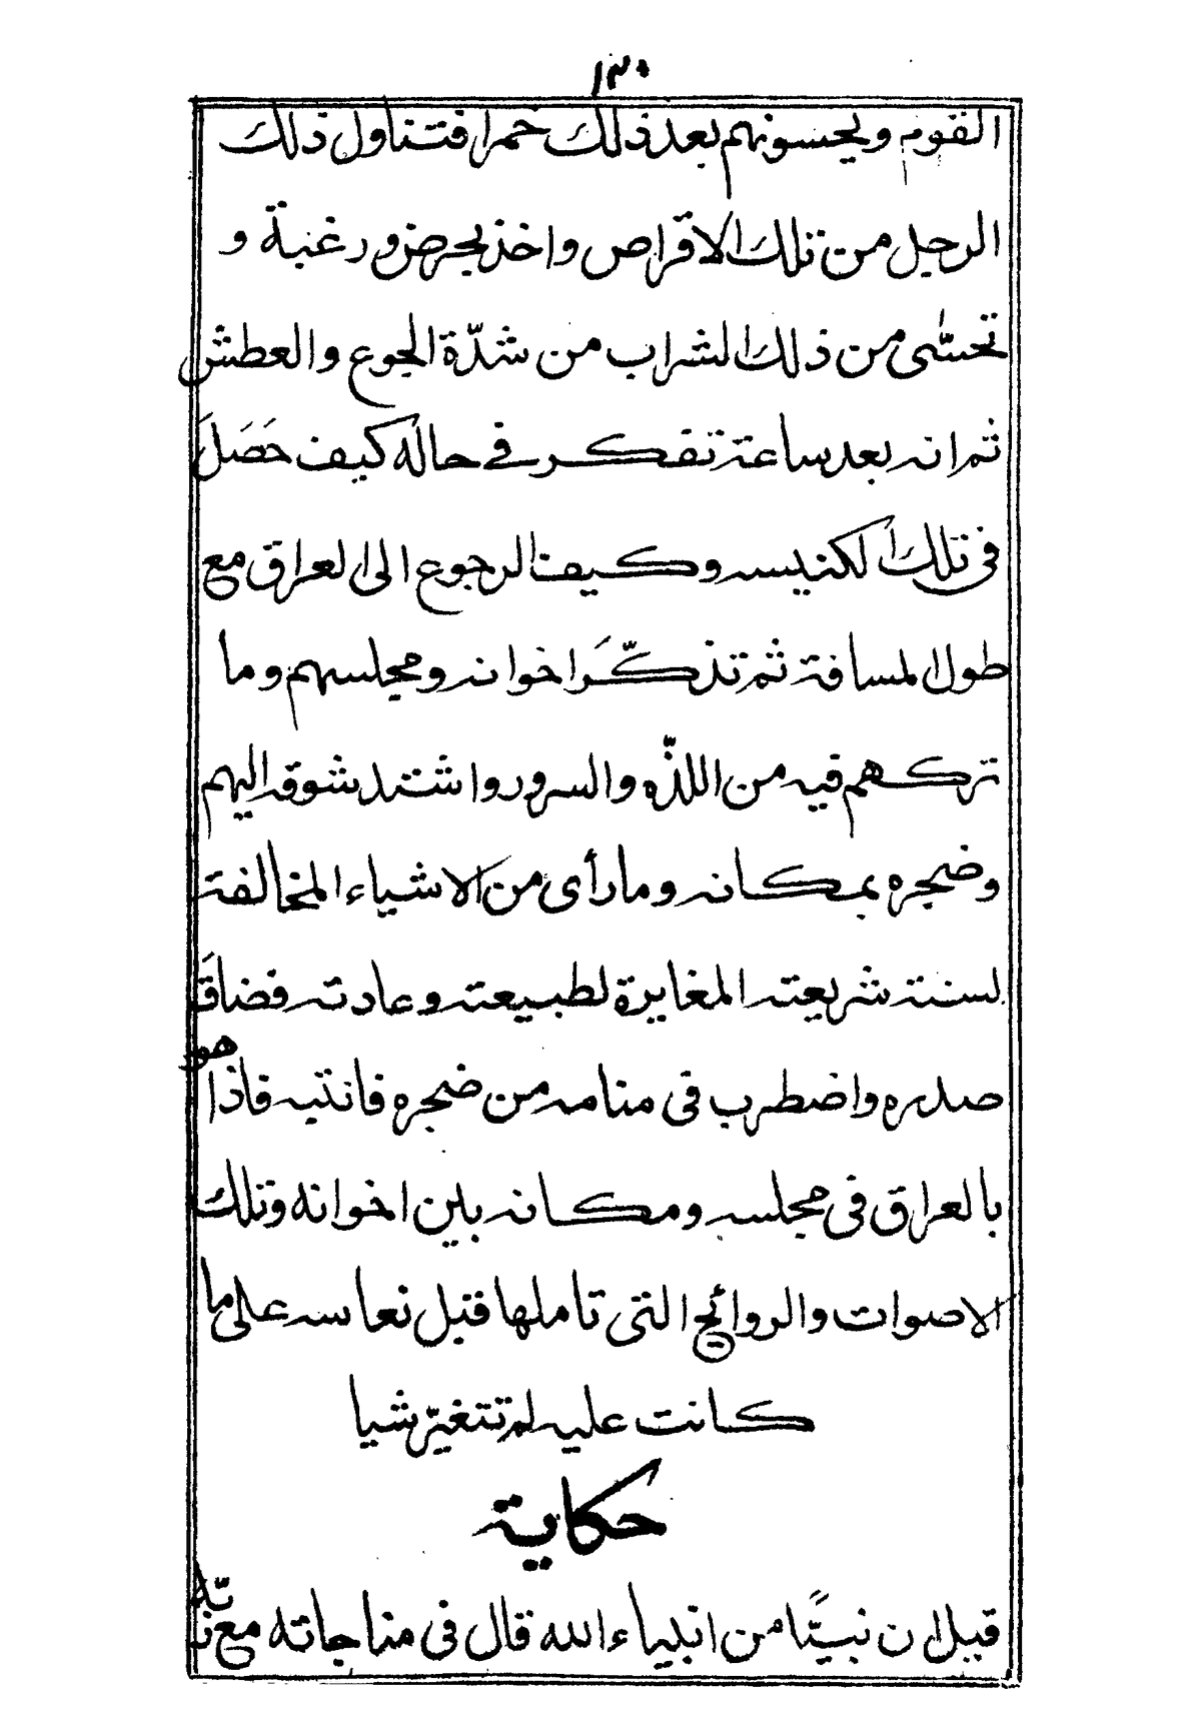 ١٣٠
القوم ويحسونهم بعد ذلك خمرا فتناول ذلك
الرجل من تلك الاقراص واخذ بحرض ورغبة و
تحسّى من ذلك الشراب من شدّة الجوع والعطش
ثم انه بعد ساعة تفكر في حاله كيف حَصَلَ
في تلك الكنيسه وكيف الرجوع الى العراق مع
طول المسافة ثم تذكّرَ اخوانه ومجلسهم وما
تركهم فيه من اللذّه والسرور واشتد شوقه اليهم
وضجره بمكانه وما رأى من الاشياء المخالفة
لسنة شريعته المغايرة لطبيعته وعادته فضاقَ
صدره واضطرب في منامه من ضجره فانتبه فاذا هو
بالعراق في مجلسه ومكانه بين اخوانه وتلك
الاصوات والروائح التي تاملها قبل نعاسه على ما
كانت عليه لم تتغيّر شيا
حكاية
قيل ان نبيًّا من انبياء الله قال في مناجاته مع ربّه